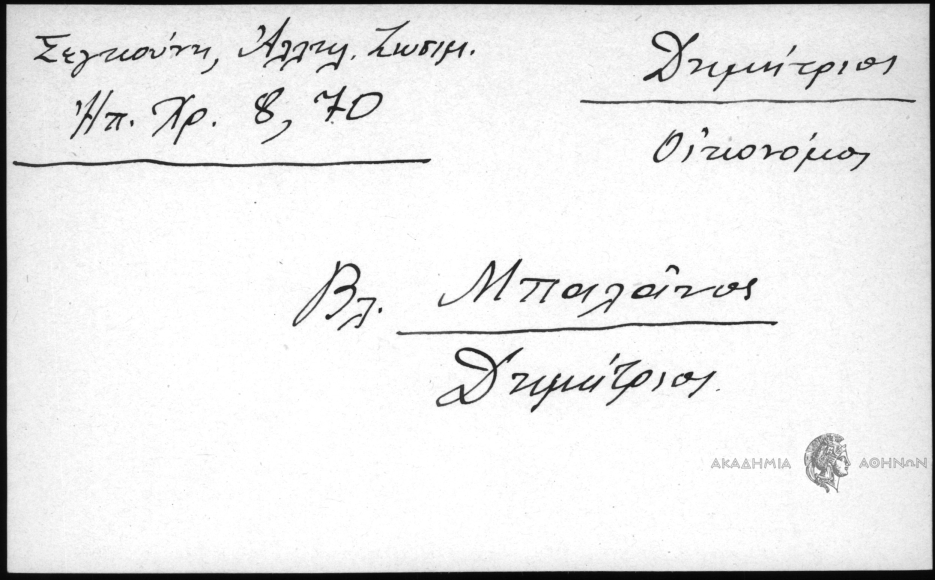 Σεγκούνη, Ἀλληλ. Ζωσιμ.
Ἠπ. Χρ. 8, 70
Δημήτριος
Οἰκονόμος
Βλ. Μπαλᾶνος
Δημήτριος
ΑΚΑΔΗΜΙΑ ΑΘΗΝΩΝ